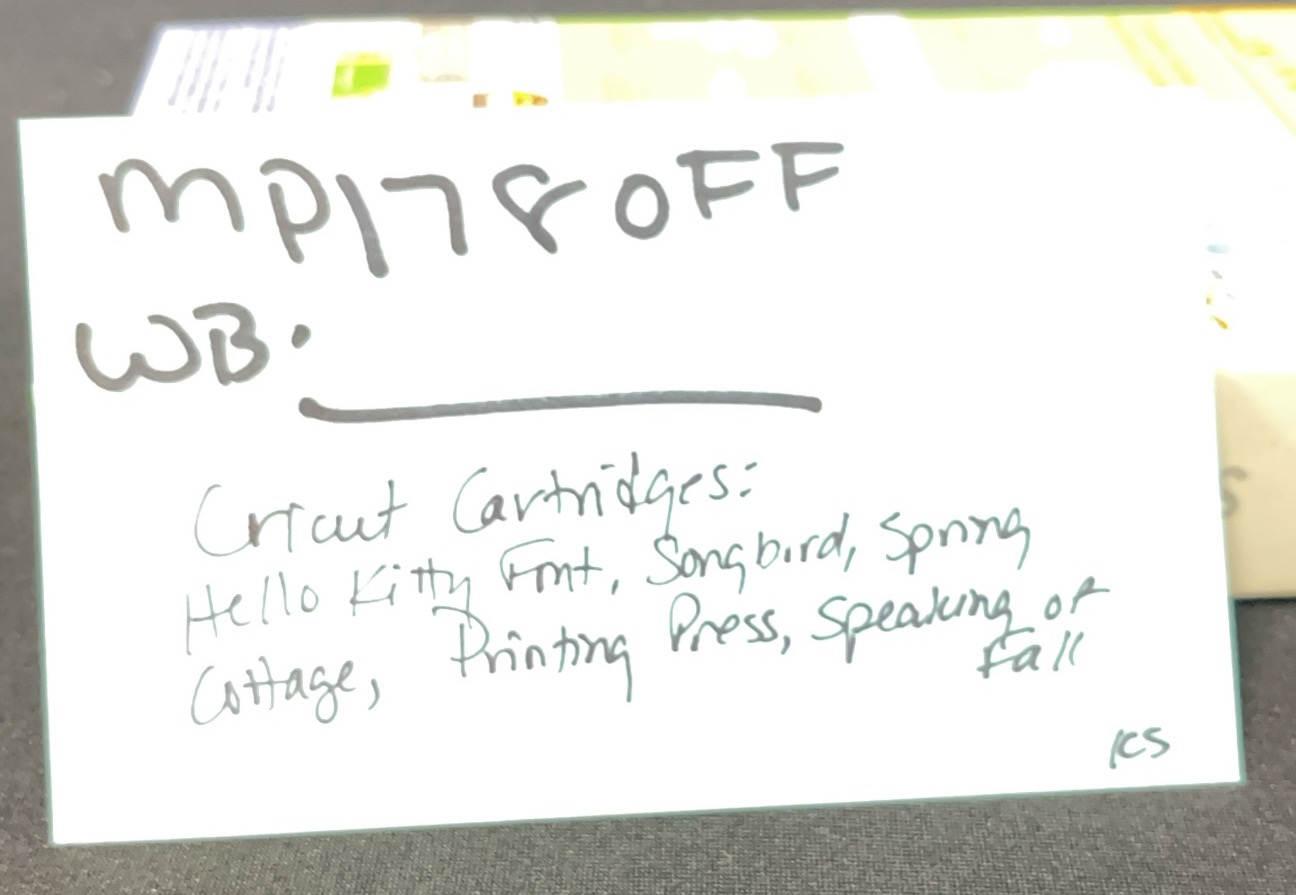 MP178OFF
WB:
Cricut Cartridges:
Hello Kitty Font, Songbird, Spring
Cottage, Printing Press, Speaking of
Fall
KS